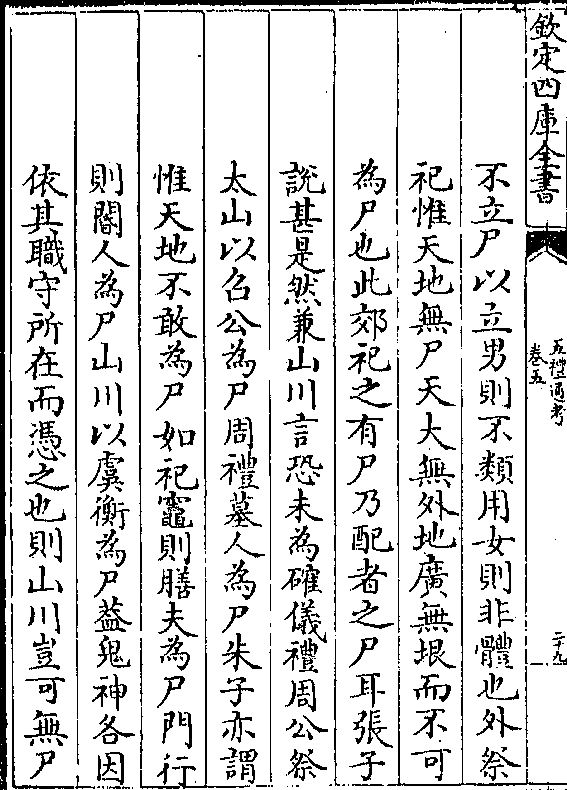 欽定四庫全書
五禮通考
卷五
二十九
不立尸以立男則不類用女則非體也外祭
祀惟天地無尸天大無外地廣無垠而不可
為尸也此郊祀之有尸乃配者之尸耳張子
說甚是然兼山川言恐未為確儀禮周公祭
太山以召公為尸周禮墓人為尸朱子亦謂
惟天地不敢為尸如祀竈則膳夫為尸門行
則閽人為尸山川以虞衡為尸葢鬼神各因
依其職守所在而憑之也則山川豈可無尸